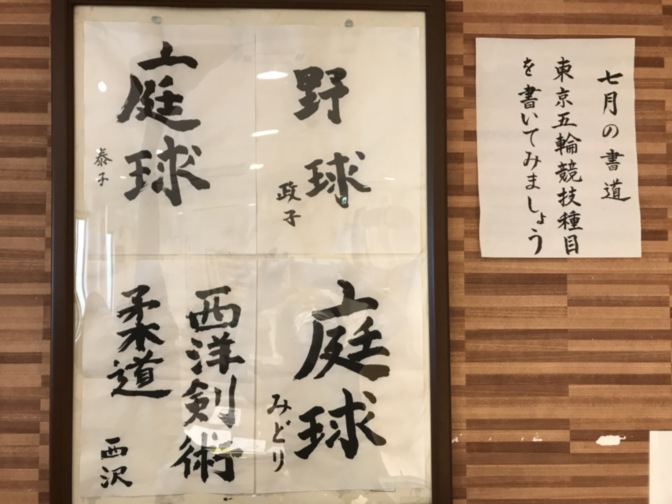 七月の書道
東京五輪競技種目
を書いてみましょう
野球
政子
庭球
泰子
庭球
みどり
西洋剣術
柔道
西沢